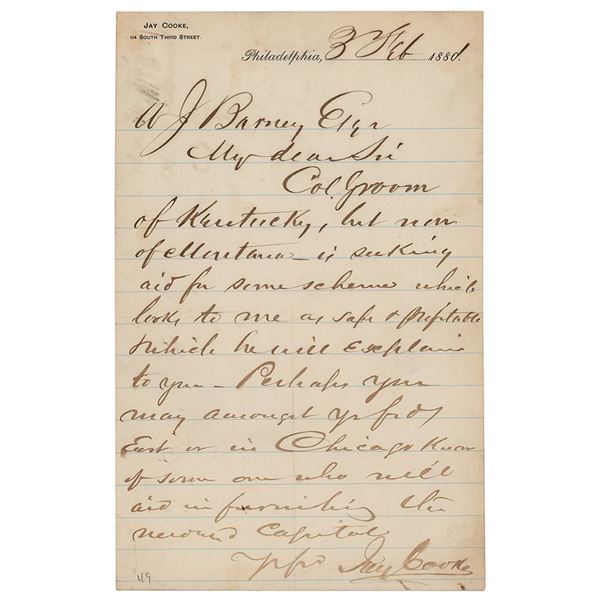 JAY COOKE,
114 SOUTH THIRD STREET.
Philadelphia, 3 Feb 1881.
W J Barney Esqr
My dear Sir
Col. Groom
of Kentucky, but now
of Montana - is seeking
aid for some scheme which
looks to me as safe & profitable
& which he will Explain
to you - Perhaps you
may amongst yr frds
East or in Chicago Know
of some one who will
aid in furnishing the
Capital
yr frd Jay Cooke
49